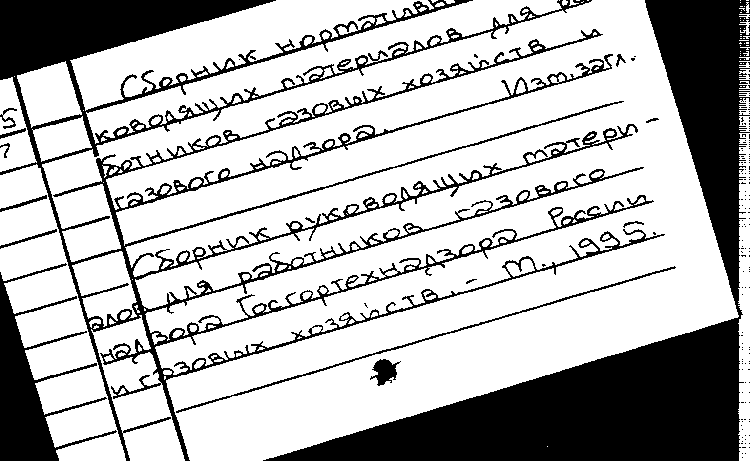 Сборник нормативн
ководящих материалов для
ботников газовых хозяйств и
газового надзора. Изм. загл.
Сборник руководящих матери-
алов для работников газового
надзора Госгортехнадзора России
и газовых хозяйств. - М., 1995.
5
7